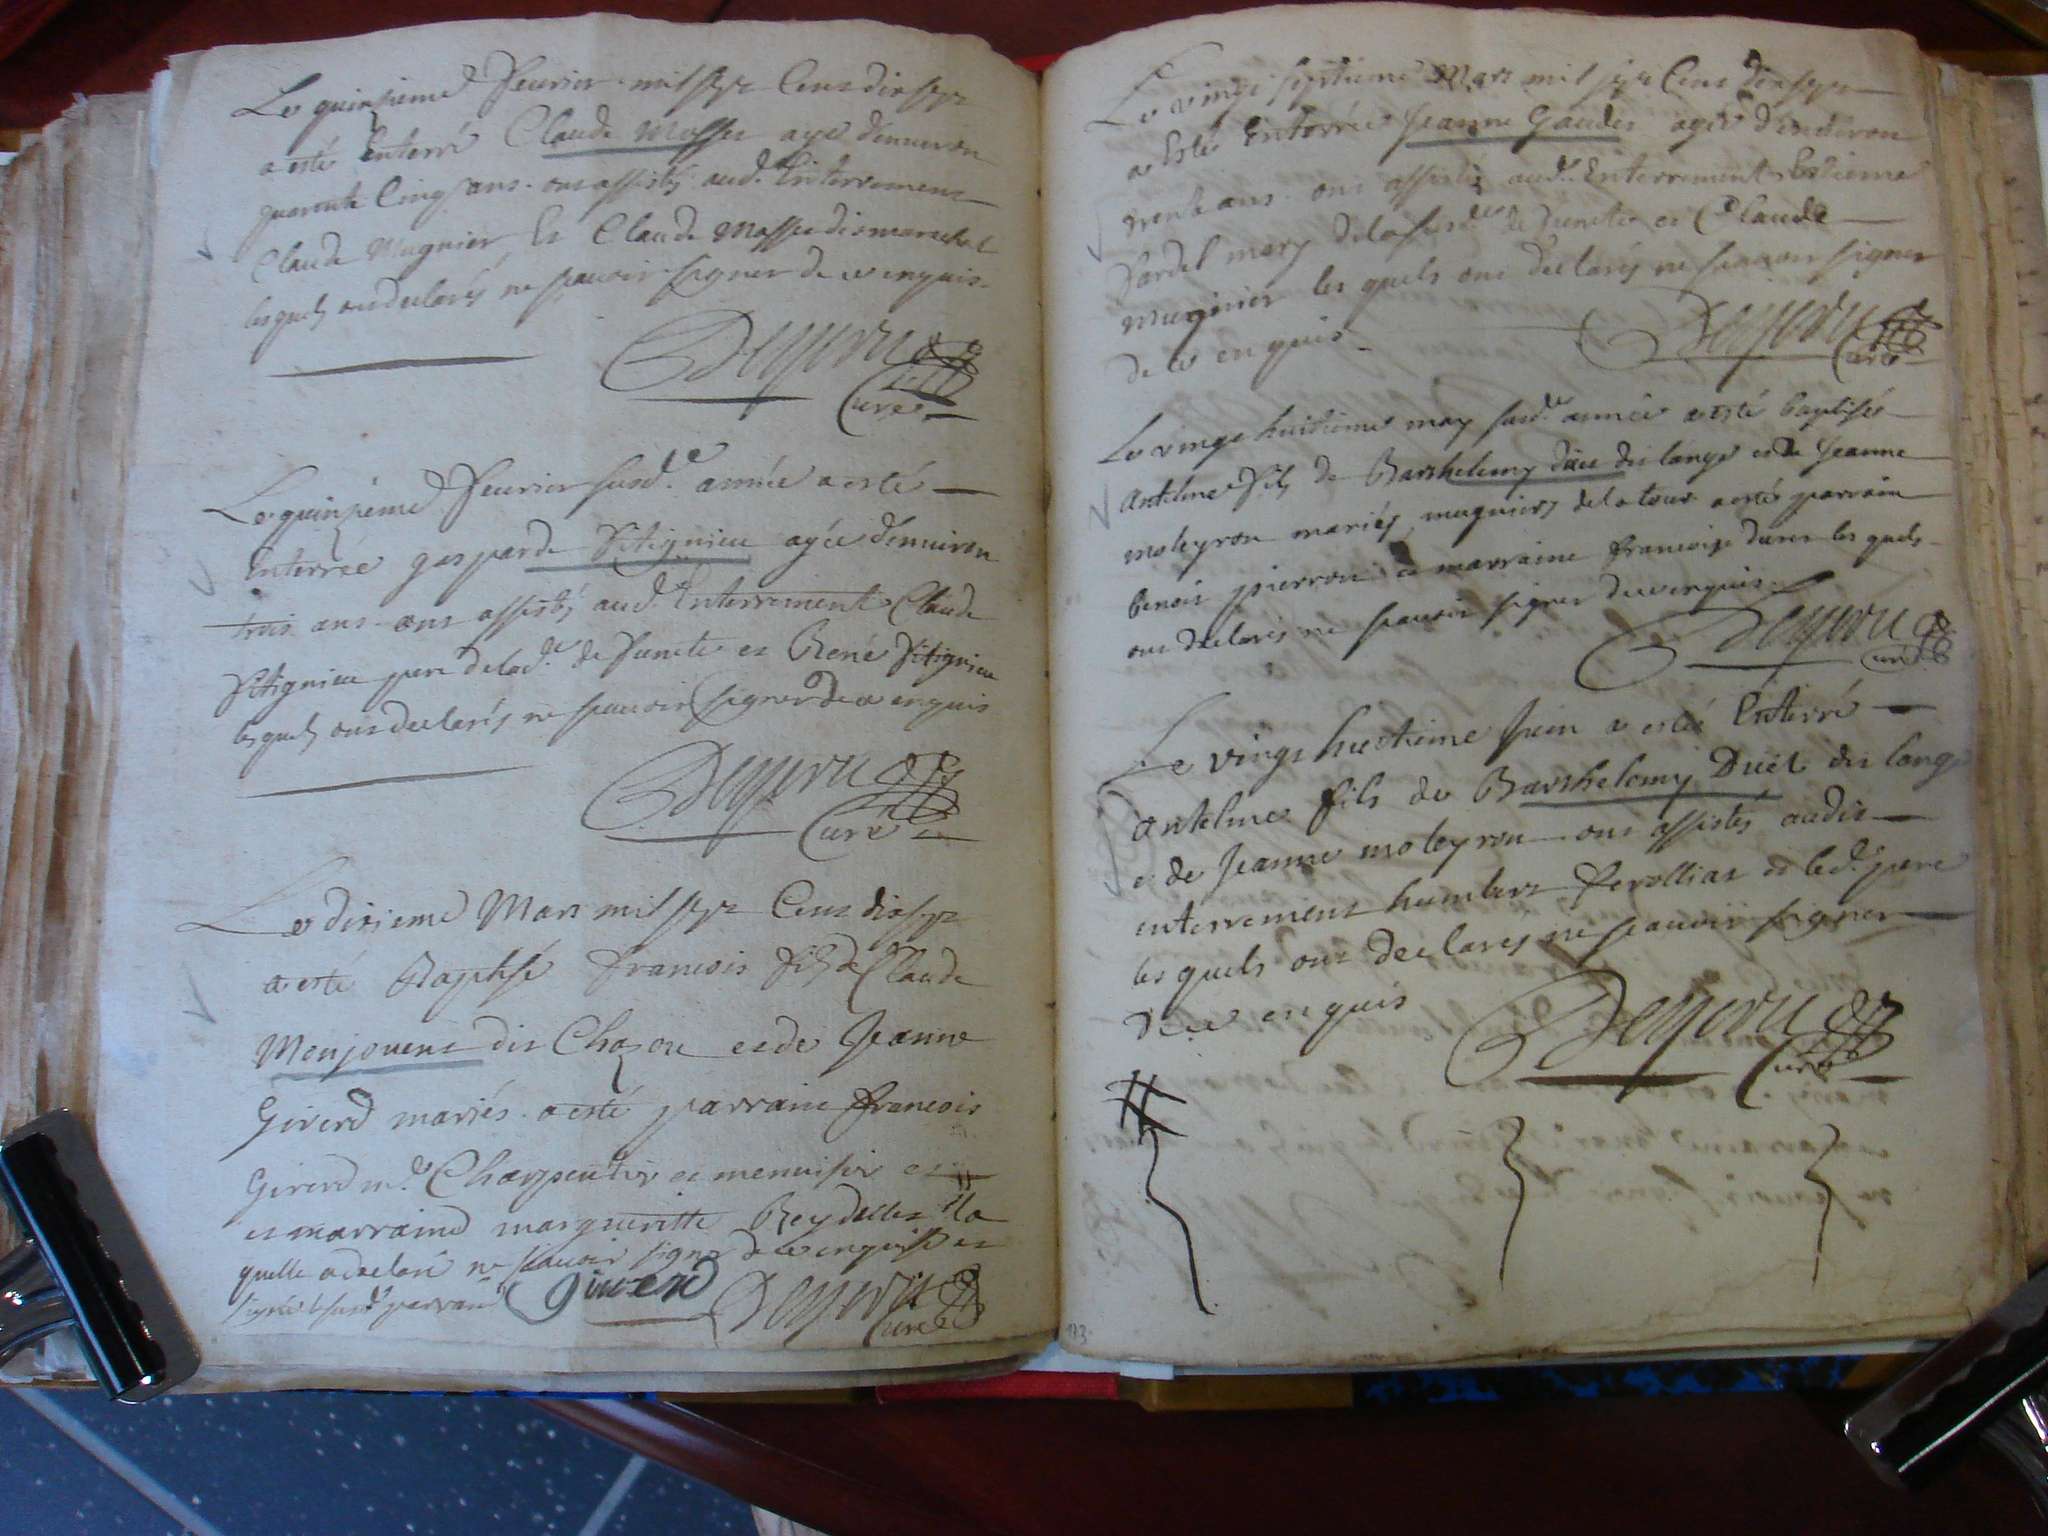 Le quinsieme feurier mil sept Cens dix sept
a esté enterré Claude Masse agé d'enuiron
quarente Cinq ans. ont assistés aud. Enterrement
Claude Mugnier Et Claude Masse dit marechal
lesquels ont declarés ne scauoir signer de ce enquis.
Curé
Le quinsieme feurier susd.e année a esté
Enterrée gasparde Vitignieu agée d'enuiron
trois ans ont assistés aud. Enterrement Claude
Vitignieu pere de lad.e defuncte et René Vitignieu
lesquels ont declarés ne scauoir signer de ce enquis
Curé
Le dixieme Mars mil sept Cens dix sept
a esté Baptisé francois fils de Claude
Monjouent dit Chazou et de Jeanne
Girerd mariés a esté parrain francois
Girerd m.e Charpentier et menuisier et
et marraine margueritte Reydellet la
quelle a declaré ne scauoir signer de ce enquise et
signé le susd. parrain Girerd
Curé
Le vingt septieme Mars mil sept Cens dix sept
a Esté Enterrée Jeanne Gaudet agée d'enuiron
trente ans. ont assistés aud. Enterrement Estienne
Tardel mary de la susd.e defuncte et Claude
Mugnier les quels ont declarés ne scauoir signer
de ce enquis.
Curé
Le vingt huitieme may susd.e année a esté baptisé
Antelme fils de Barthelemy düet dit lange et de Jeanne
moleyron mariés, mugniers de la tour a esté parrain
benoit pierron et marraine francoise les quels
ont declarés ne scauoir signer de ce enquis.
Curé
Le vingt huitieme Juin a esté Enterré
Antelme fils de Barthelemy Düet dit lange
et de Jeanne moleyron ont assistés audit
enterrement humbert ferolliat et led. pere
les quels ont declarés ne scauoir signer
de ce enquis
Curé
173